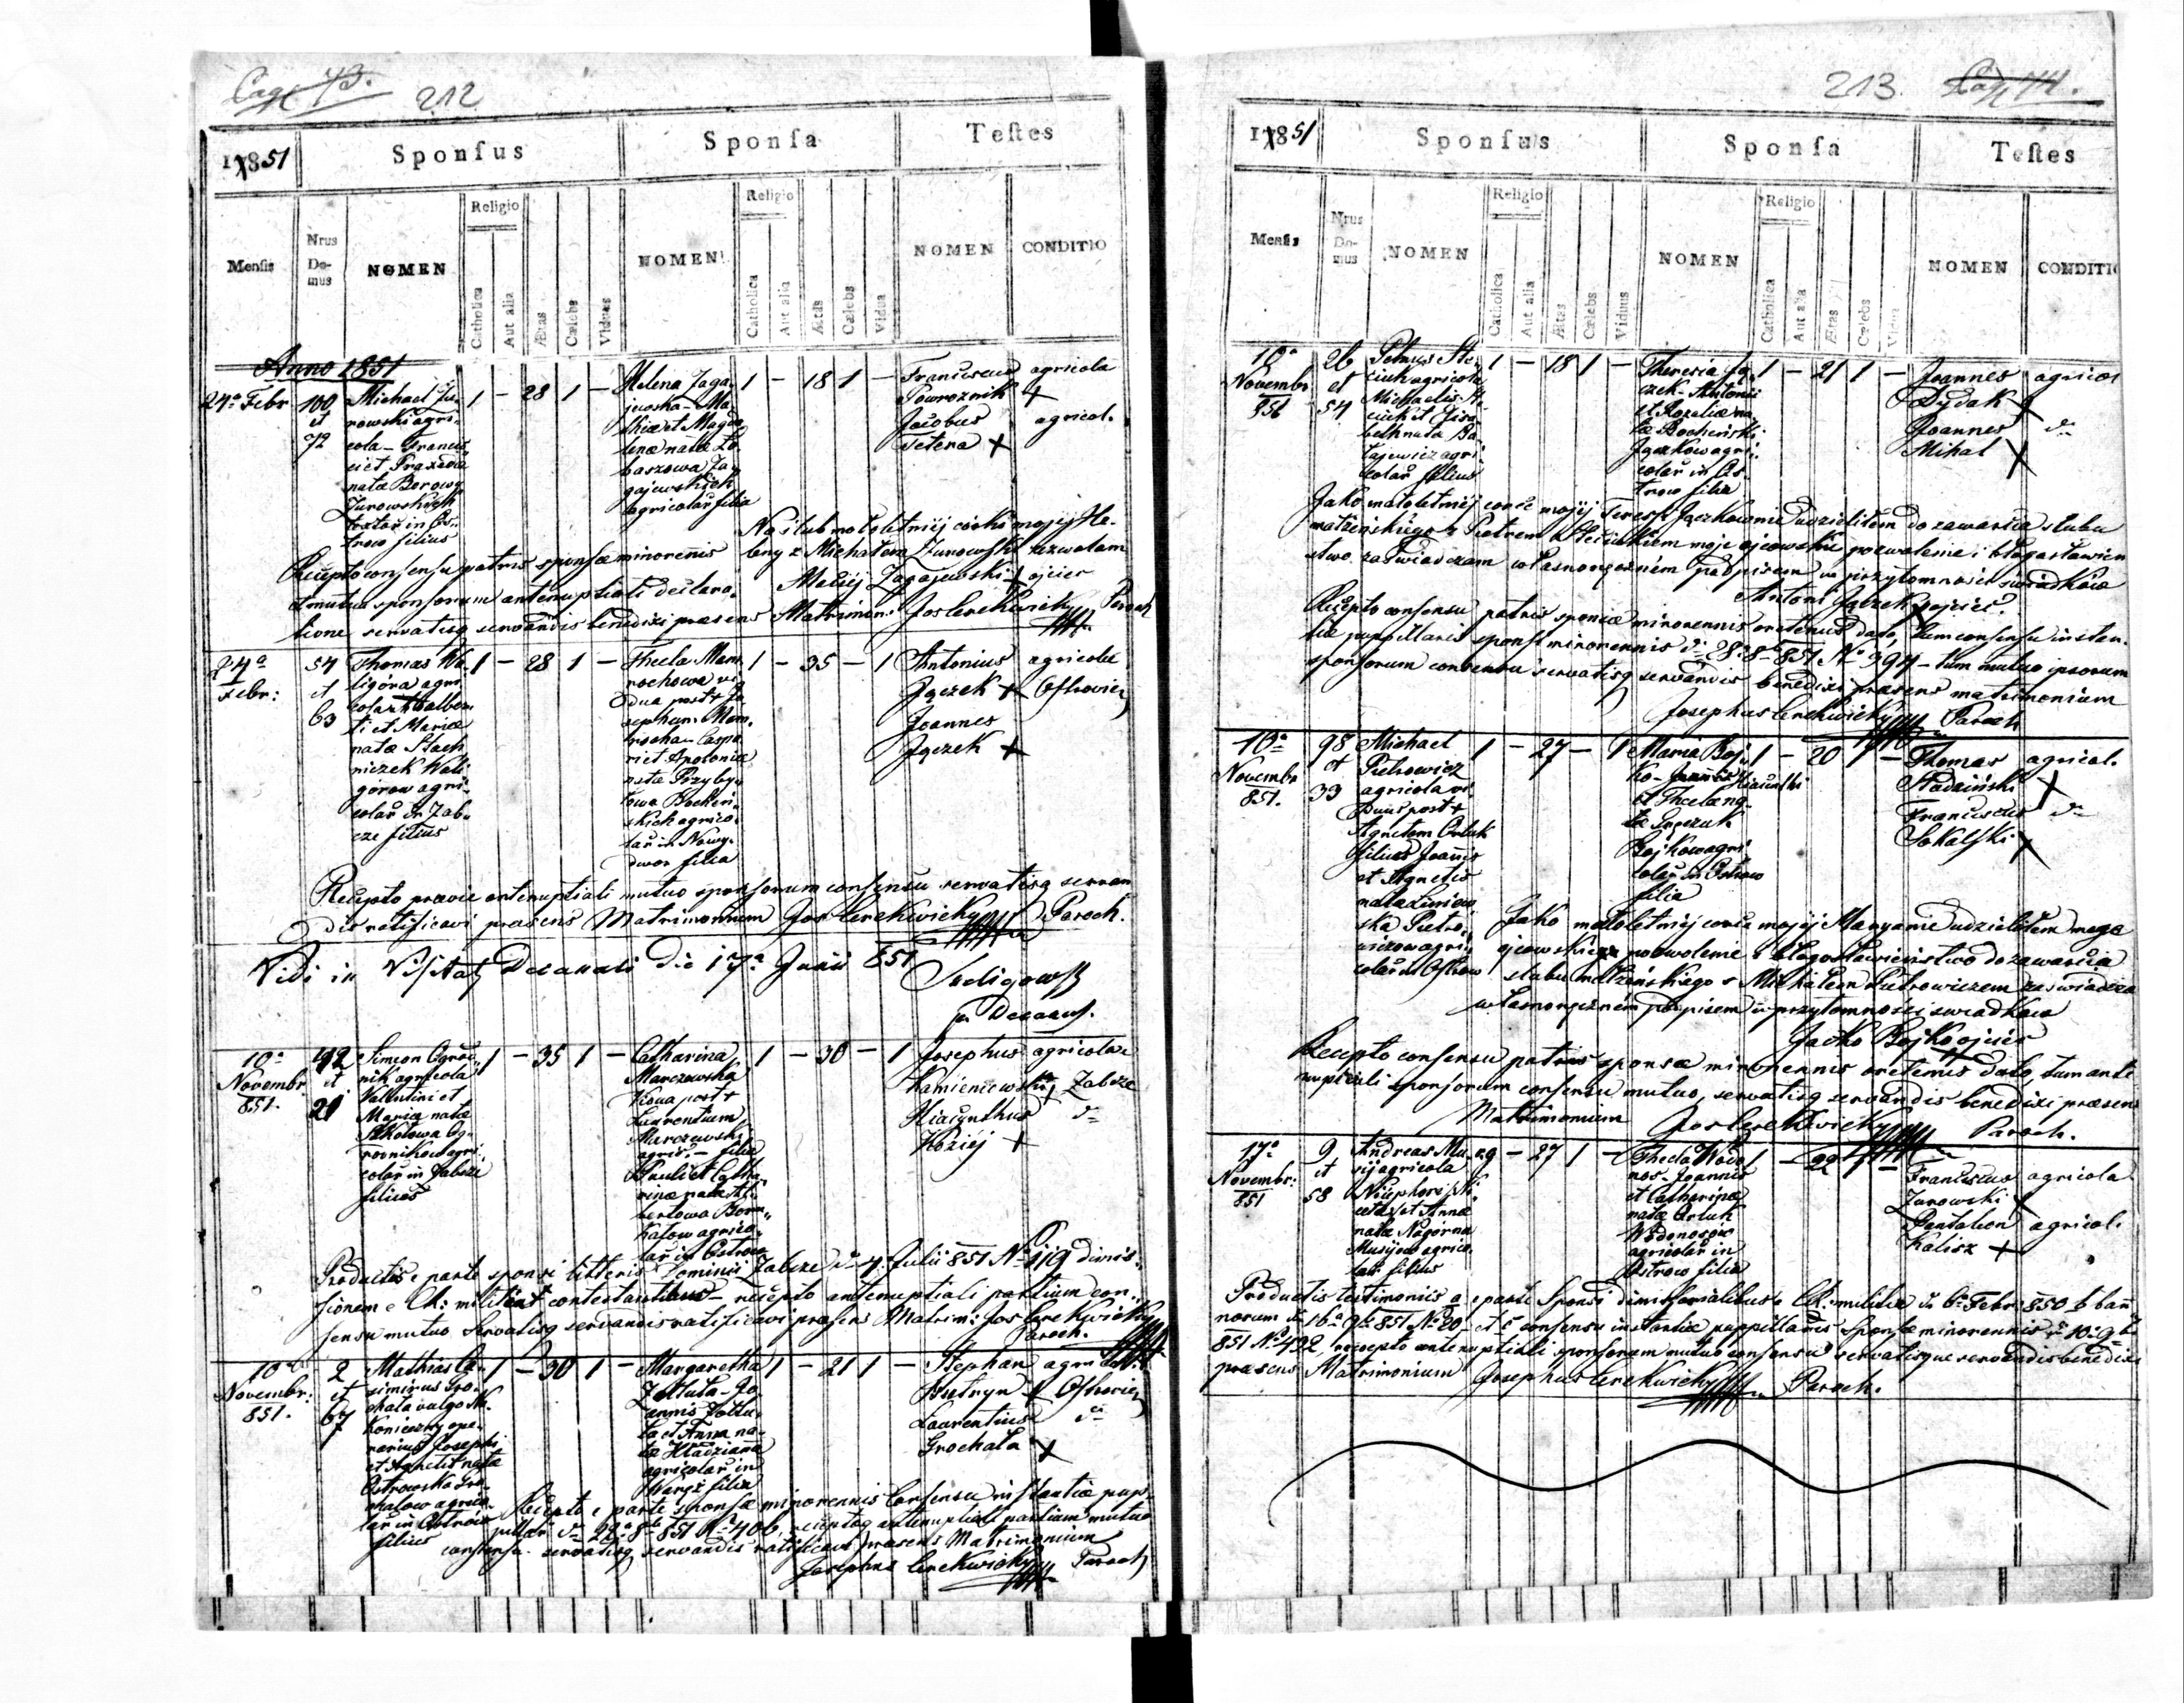 Pag 73.
212
1851
Sponsus
Sponsa
Testes
Mensis
Nrus Domus
NOMEN
Religio
Catholica
Aut alia
Ætas
Cœlebs
Viduus
NOMEN
Religio
Catholica
Aut alia
Ætas
Cœlebs
Vidua
NOMEN
CONDITIO
Anno 1851
24a Febr
100
et
72
Michael Żu-
rowski agri-
cola - Francis-
ci et Praxeda
nata Borowy
Żurowskich
in Os-
trow filius
1 - 28 1 -
Helena Zaga-
jewska - Ma-
thiæ et Magda-
lenæ natæ Lo-
baszowa Za-
gajewskich
agricolar filia
1 - 18 1 -
Franciscus
Powroznik +
Jacobus
Tetera +
agricola
agricol.
Na ślub małoletniéj córki mojéj He-
leny z Michałem Żurowski zezwalam
Maciéj Zagajewski + ojciec
Recepto consensu patris sponsæ minorenis
et mutua sponsorum antenuptiali declara-
tione servatisq servandis benedixi præsens Matrimon: Jos Cerekwicky Paroch
24a
Febr:
54
et
63
Thomas Wa-
ligóra agri-
cola Adalber-
ti et Mariæ
natæ Stach-
niczek Wali-
górow agri-
colar in Żab-
cze filius
1 - 28 1 -
Thecla Mam-
rochowa vi-
dua post + Jo-
sephum Mam-
rocha - Caspa-
ri et Apoloniæ
nata Przyby-
łowa Bocheń-
skich agrico-
lar in Nowy-
dwor filia
1 - 35 - 1
Antonius
Jączek +
Joannes
Jączek +
agricolæ
Ostrovien
Recepto prævie antenuptiali mutuo sponsorum consensu servatisq servan-
dis ratificavi præsens Matrimonium Jos Cerekwicky Paroch.
Vidi in Visitat Decanali die 17a Junii 851
10a
Novembr
851.
42
et
21
Simeon Ogrod-
nik agricola
Valentini et
Mariæ natæ
Szkołowa Og-
rodnikow agri-
colar in Żabcze
filius
1 - 35 1 -
Catharina
Marczewska
vidua post +
Laurentium
Marczewski
agric. - filia
Pauli et Catha-
rinæ natæ Al-
bertowa Born-
katow agrico-
lar in Ostrow
1 - 30 - 1
Josephus
Kamieniewski
Hiacynthus
Koziéj +
agricolæ
Żabcze
do
Productis e parte sponsi litteris Dominii Żabcze do 4 Julii 851 No 119 dimis-
sionem e CR: militia contestantibus - recepto antenuptiali partium con-
sensu mutuo servatisq servandis ratificavi præsens Matrim: Jos Cerekwicky
Paroch.
10a
Novembr:
851.
2
et
67
Mathias Ca-
simirus Gro-
chala vulgo
Konieczny ope-
rarius Josephi
et Agnetis natæ
Ostrowska Gro-
chalow agrico-
lar in Ostrow
filius
1 - 30 1 -
Margaretha
Żołtuła - Jo-
annis Żołtu-
ła et Anna na-
tæ Hładziana
agricolar in
Waręż filia
1 - 21 1 -
Stephan
Butryn +
Laurentius
Grochala +
agricol:
Ostrovien
do
Recepto e parte sponsæ minorennis consensu instantiæ pup-
pillar do 22a 8br 851 No 406, receptoq antenuptiali partium mutuo
consensu servatisq servandis ratificavi præsens Matrimonium
Josephus Cerekwicky Paroch
213. Pag 74.
1851
Sponsus
Sponsa
Testes
Mensis
Nrus Domus
NOMEN
Religio
Catholica
Aut alia
Ætas
Cœlebs
Viduus
NOMEN
Religio
Catholica
Aut alia
Ætas
Cœlebs
Vidua
NOMEN
CONDITI
10a
Novembr
26
et
54
Petrus Ste-
ciuk agricola
Michaelis St-
ciuk et Elisa-
beth nata Ba-
tajewicz agri-
colar filius
1 - 18 1 -
Theresia Ją-
czek - Antonii
et Rozaliæ na-
tæ Bocheński
Jączkow agri-
colar in Os-
trow filia
1 - 21 1 -
Joannes
Dydak +
Joannes
Mihal +
agricol
do
Jako małoletniéj córce mojéj Teressi Jączkownie udzieliłem do zawarcia ślubu
małżeńskiego z Piotrem Steciukiem moje ojcowskie pozwolenie i błogosławień-
stwo zaświadczam własnoręcznem podpisem w przytomności świadków
Antoni Jączek + ojciec.
Recepto consensu patris sponsæ minorennis oretenus dato, tum consensu instan-
tiæ puppillaris sponsi minorennis do 28 8br 851 No 394 - tum mutuo ipsorum
sponsorum consensu servatisq servandis benedixi præsens matrimonium
Josephus Cerekwicky Paroch
10a
Novembr
851.
98
et
33
Michael
Pietrowicz
agricola vi-
duus post +
Agnetem Orluk
filius Joannis
et Agnetis
nata
Pietro-
wiczow agri-
colar in Ostrow
1 - 27 - 1
Maria Boj-
ko - Hiacinthi
et Theclæ na-
tæ
Bojkow agri-
colar in Ostrow
filia
1 - 20 1 -
Thomas
Franciscus
Sokalski +
agricol.
do
Jako małoletniéj córce mojéj Maryannie udzieliłem mego
ojcowskiego pozwolenie i błogosławieństwo do zawarcia
ślubu małżeńskiego z Michałem Pietrowiczem zaświadcza
własnoręczném podpisem w przytomności świadków
Jacko Bojko ojciec
Recepto consensu patris sponsæ minorennis oretenus dato, tum ante
nuptiali sponsorum consensu mutuo, servatisq servandis benedixi præsens
Matrimonium Jos Cerekwicky Paroch.
17a
Novembr:
851
9
et
58
Andreas Mu-
sij agricola
Nicephori
et Annæ
nata Nagórna
Musijow agrico-
lar filius
rg - 27 1 -
Thecla Wodo-
nos - Joannis
et Catharinæ
natæ Orluk
Wodonosow
agricolar in
Ostrow filia
1 - 22 1 -
Franciscus
Żurowski +
Pantalon
Kalisz +
agricola
agricol.
Productis testimoniis a, e parte Sponsi dimissorialibus e CR: militia do 6a Febr: 850 b, ban-
norum do 16a 9br 851 No 20 - et c, consensu instantiæ puppillaris Sponsæ minorennis do 10a 9br
851 No 492, recepto antenuptiali sponsorum mutuo consensu servatisque servandis benedixi
præsens Matrimonium Josephus Cerekwicky Paroch.